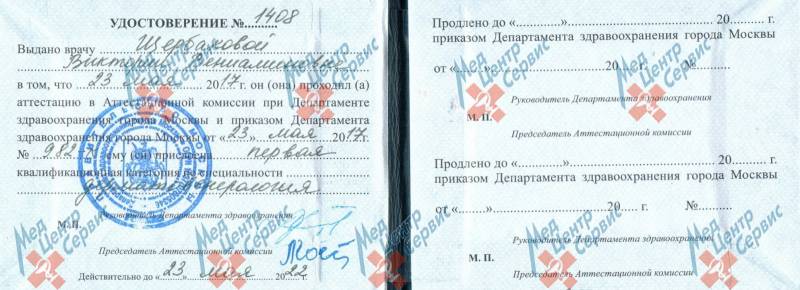 УДОСТОВЕРЕНИЕ № 1408
Выдано врачу Щербаковой
Виктории Вениаминовне
в том, что 23 мая 2017 г. он (она) проходил (а)
аттестацию в Аттестационной комиссии при Департаменте
здравоохранения города Москвы и приказом Департамента
здравоохранения города Москвы от «23» мая 2017
№ 982 ему (ей) присвоена первая
квалификационная категория по специальности
дерматовенерология
Руководитель Департамента здравоохранения
М.П.
Председатель Аттестационной комиссии
Действительно до «23» мая 2022 г.
Продлено до «..............» 20.......... г.
приказом Департамента здравоохранения города Москвы
от «.......» 20..... г. №...........
Руководитель Департамента здравоохранения
М. П.
Председатель Аттестационной комиссии
Продлено до «..............» 20.......... г.
приказом Департамента здравоохранения города Москвы
от «.......» 20..... г. №...........
Руководитель Департамента здравоохранения
М. П.
Председатель Аттестационной комиссии
Мед Центр Сервис